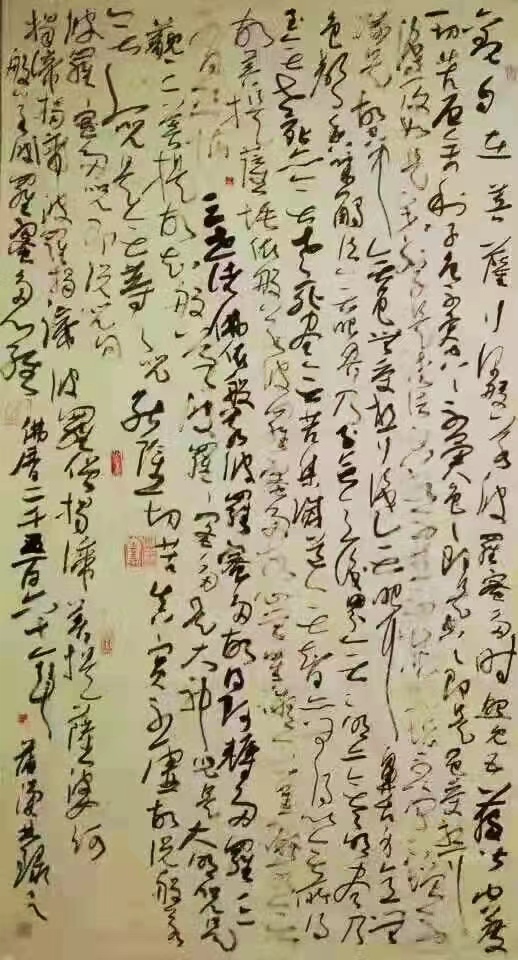 觀自在菩薩行深般若波羅蜜多時照見五蘊皆空度
一切苦厄舍利子色不異空空不異色色即是空空即是色受想行
識亦復如是舍利子是諸法空相不生不滅不垢不淨不增不
減是故空中無色無受想行識無眼耳鼻舌身意無
色聲香味觸法無眼界乃至無意識界無無明亦無無明盡乃
至無老死亦無老死盡無苦集滅道無智亦無得以無所得
故菩提薩埵依般若波羅蜜多故心無罣礙無罣礙故
三世諸佛依般若波羅蜜多故得阿耨多羅三
藐三菩提故知般若波羅蜜多是大神咒是大明咒是
無上咒是無等等咒能除一切苦真實不虛故說般若
波羅蜜多咒即說咒曰
揭諦揭諦波羅揭諦波羅僧揭諦菩提薩婆訶
般若波羅蜜多心經 佛曆二千五百六十年 錄之